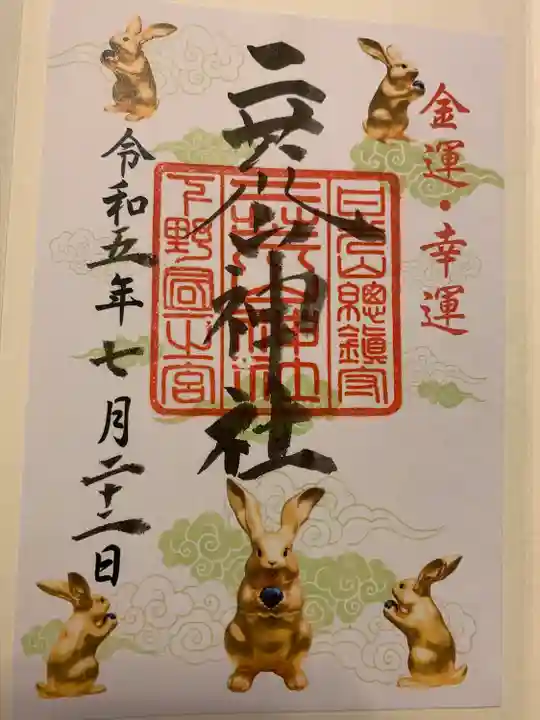 金運・幸運
二荒山神社
日光山總鎮守
下野國一之宮
令和五年七月二十二日